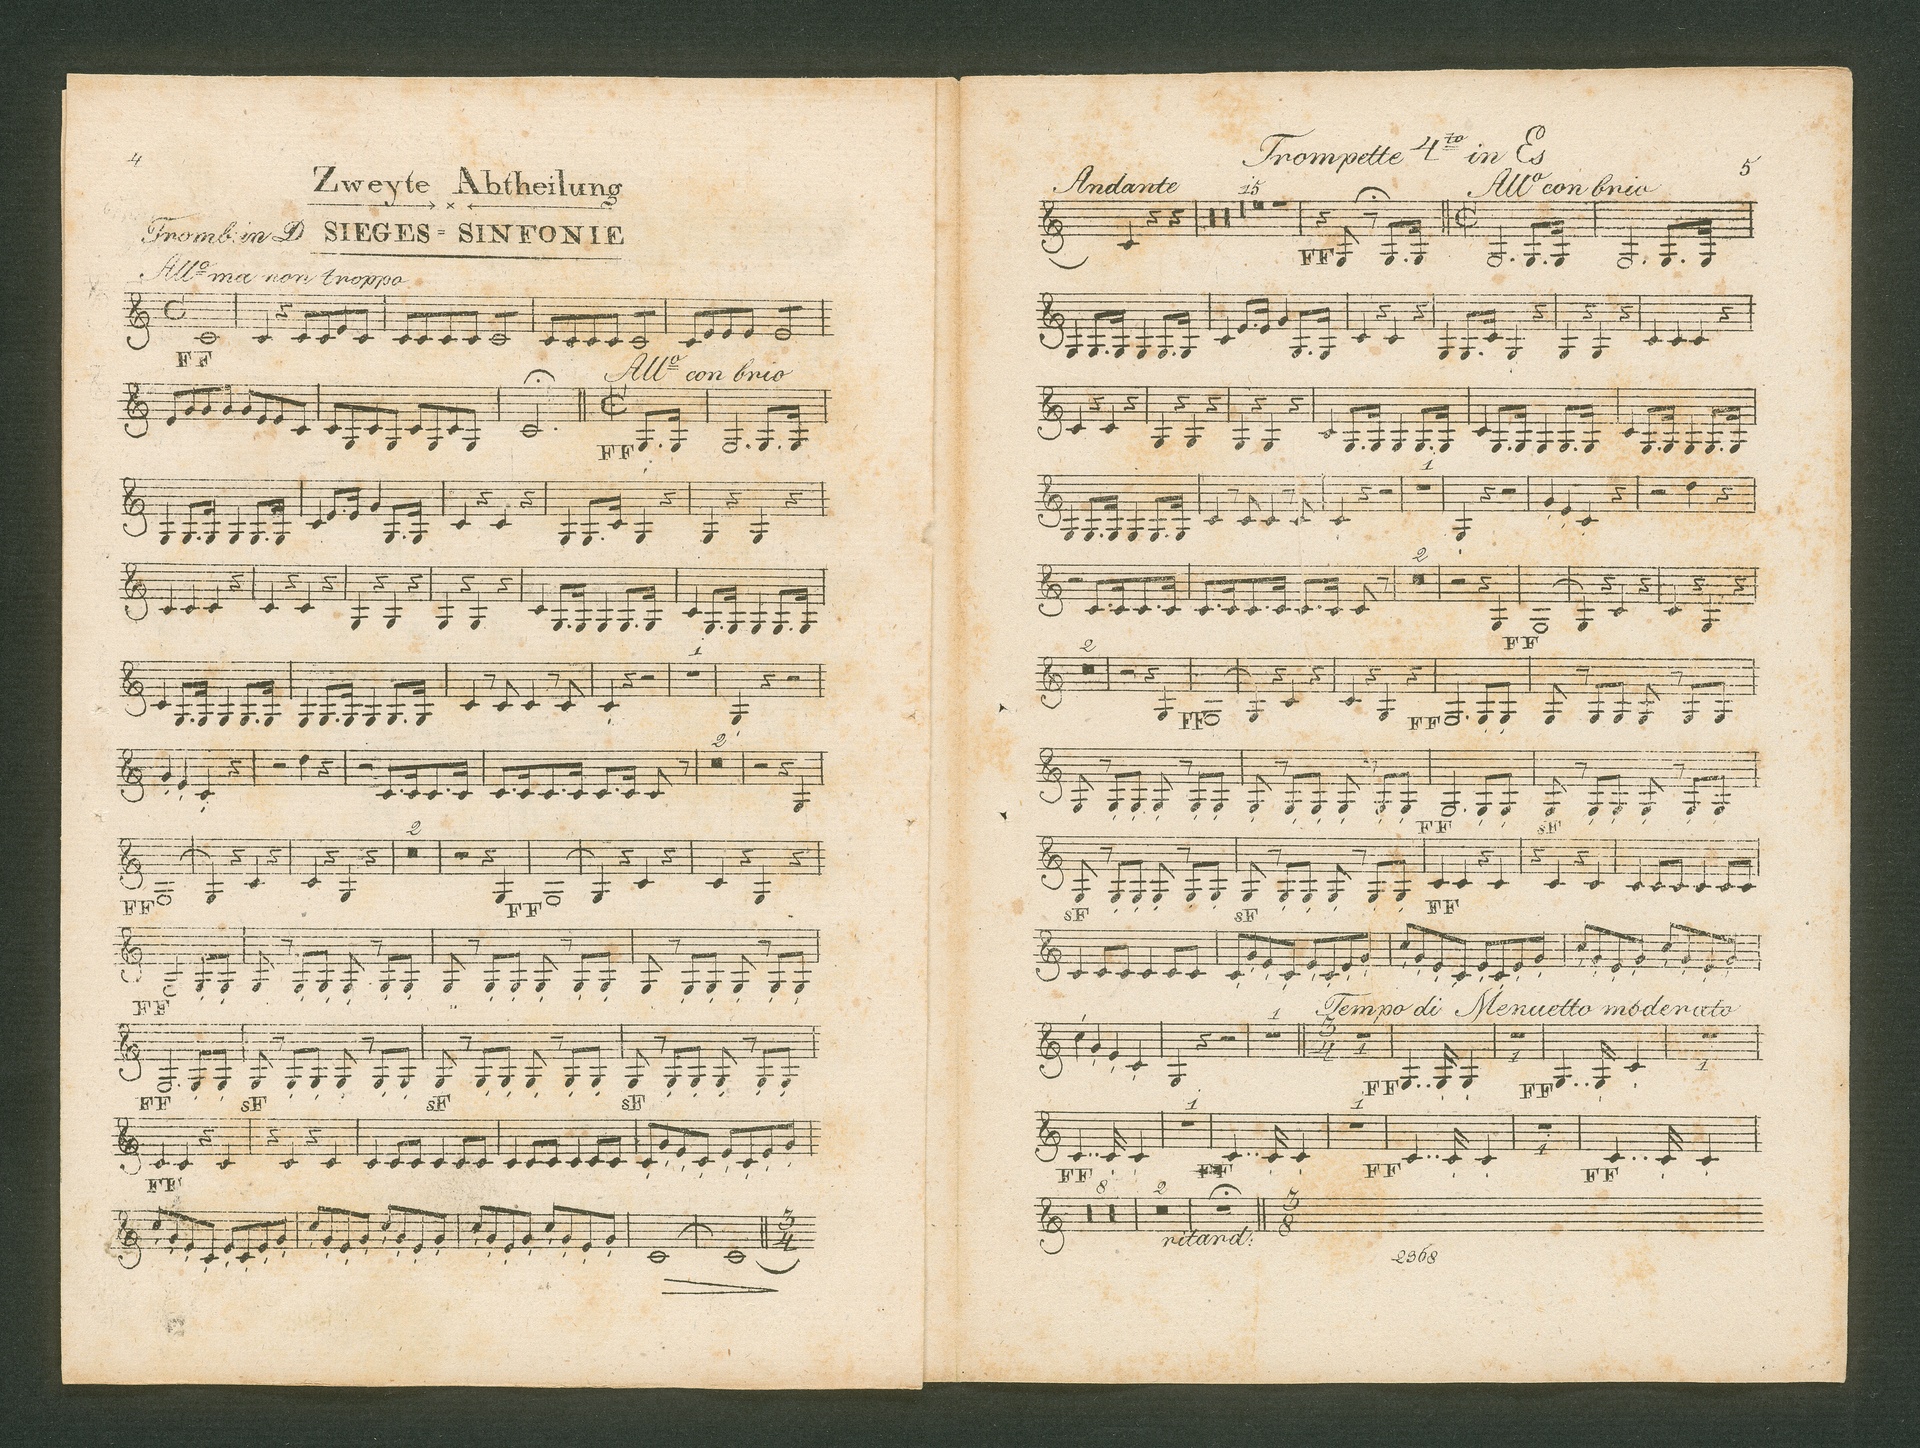 4
Zweyte Abtheilung
Tromb: in D SIEGES = SINFONIE
Allº ma non troppo
FF
Allº con brio
FF
1
2
2
FF
FF
FF
FF sF sF sF
FF
3
4
Trompette 4to in Es
5
Andante 15 Allº con brio
FF
1
2
FF
2
FF FF
FF sF
sF sF FF
Tempo di Menuetto moderato
1 3 4 1 1 1
FF FF
1 1 1
FF FF FF FF
8 2 3 8
ritard:
2368